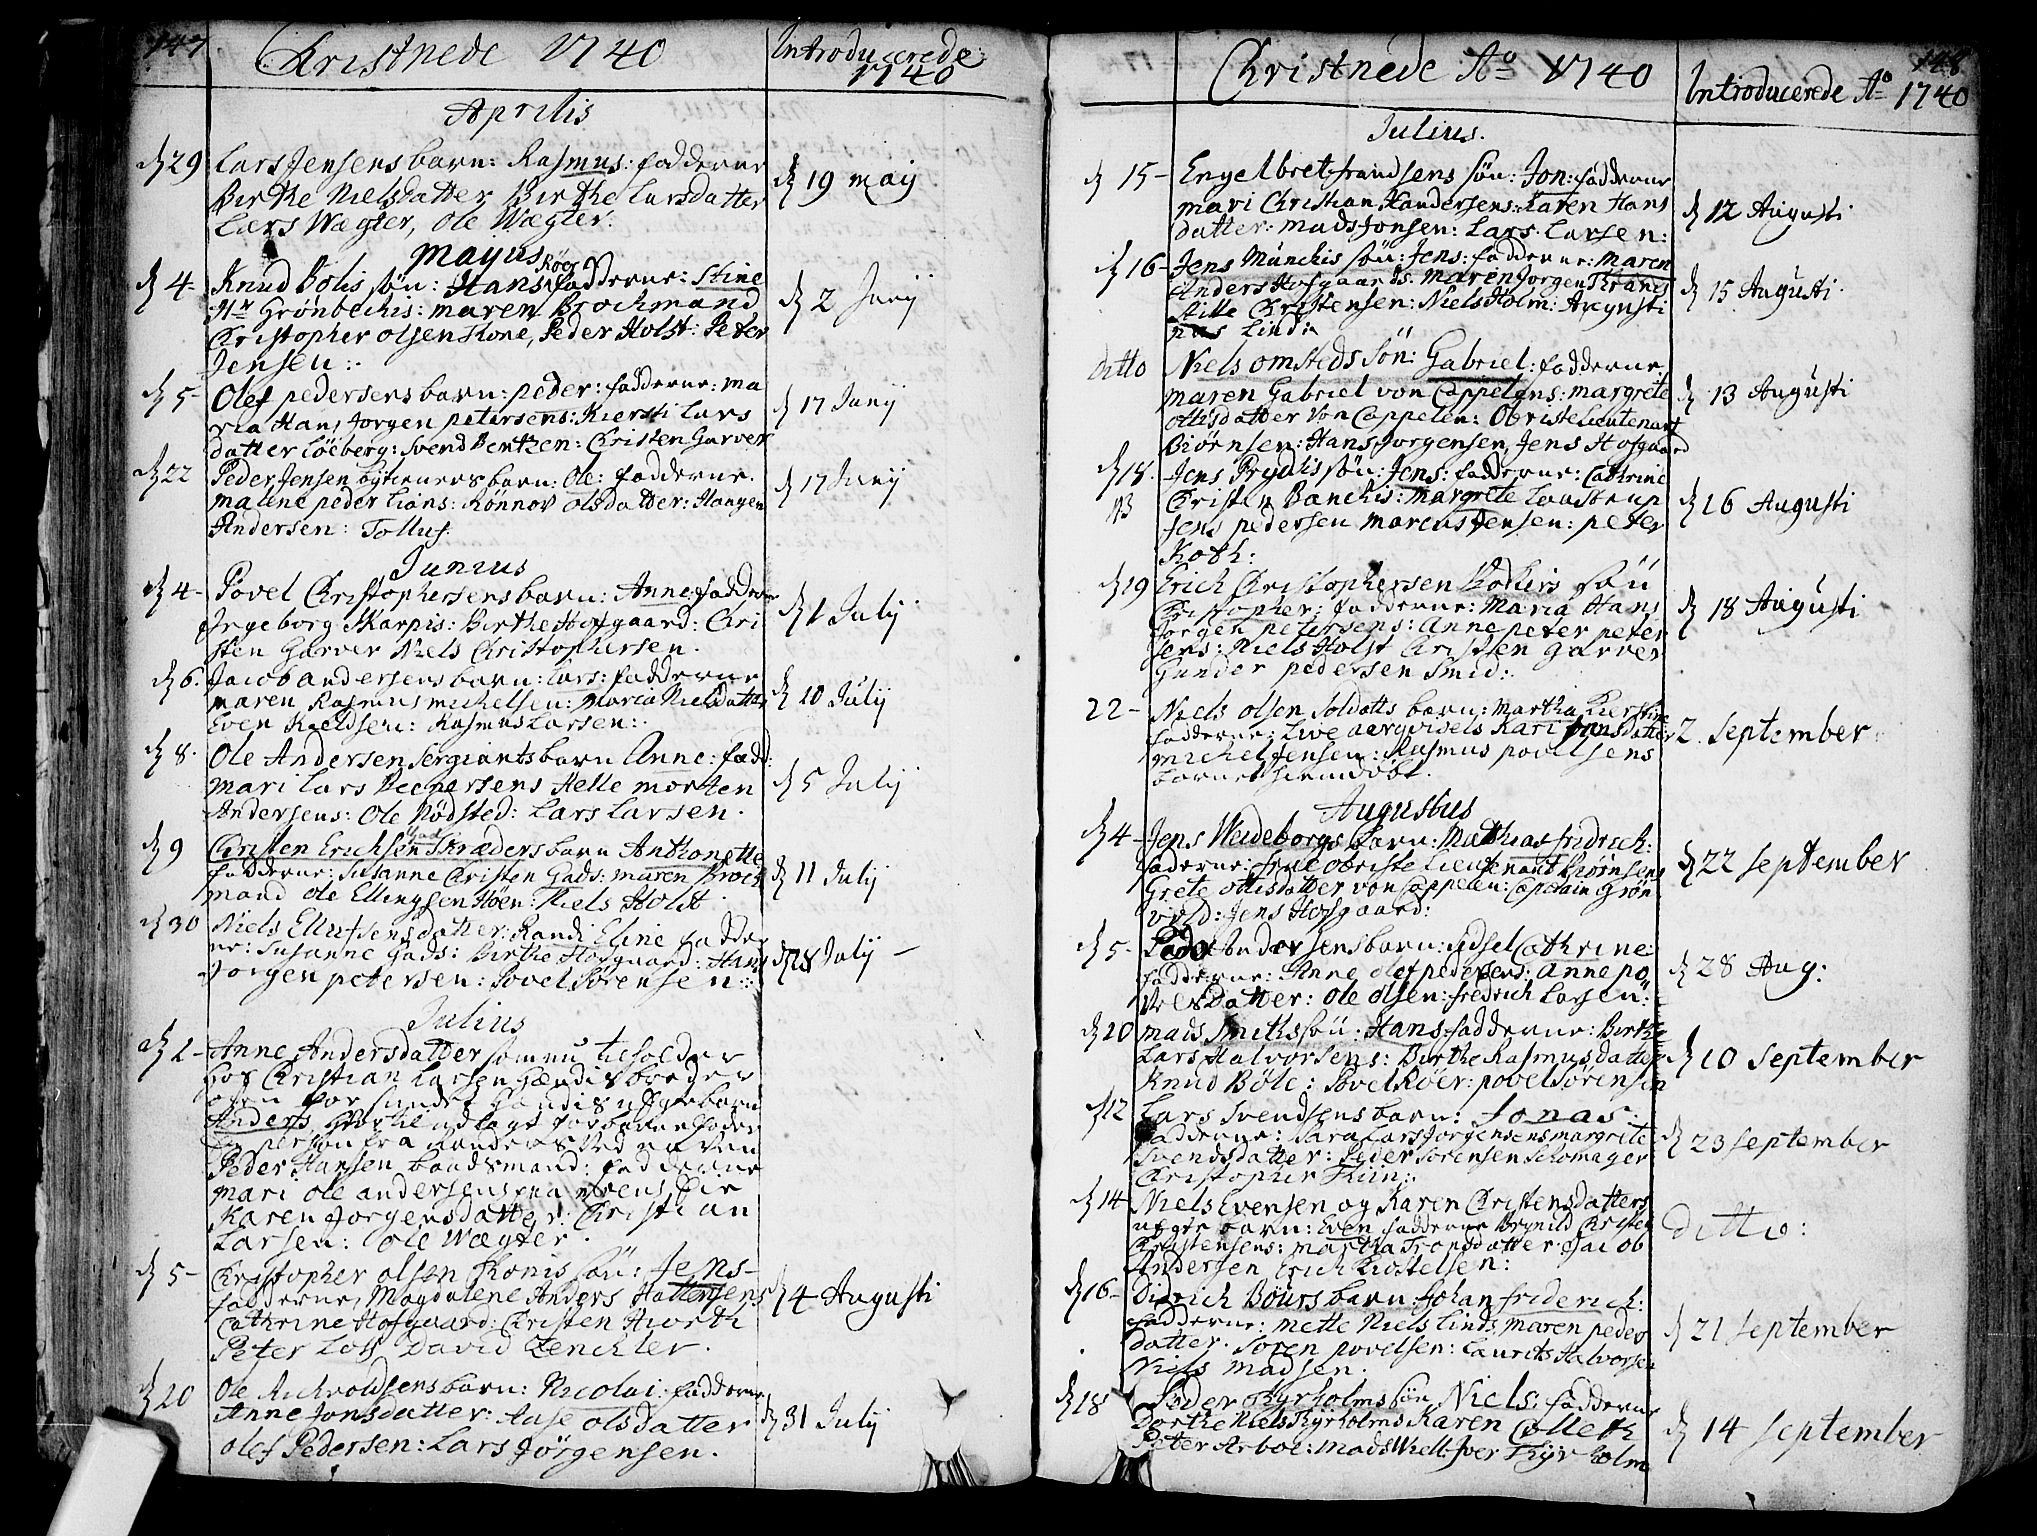 147
Christnede 1740
Introducerede
1740
Aprilis
d 29 Lars Jensens barn: Rasmus: fadderne
Birthe Nielsdatter Birthe Larsdatter
Lars Wægter, Ole Wægter.
d 19 maij
Mayus
d 4 Knud Bolis søn: Hans Röer fadderne: Stine
Hr Grönbechis: maren Brochmand
Christopher olsen Kone, Peder Holst: Peter
Jensen:
d 2 Junij
d 5 Olef pedersens barn: peder: fadderne: ma
ria Hans Jorgen petersens: Kiersti Lars
datter Löeberg: Svend Bentzen: Christen Garver
d 17 Junij
d 22 Peder Jensen bytieners barn: Ole: fadderne.
malene peder Lians: Rönnov olsdatter: Haagen
Andersen: Tollus.
d 17 Junij
Junius
d 4 Povel Christophersens barn: Anne: fadderne
Ingeborg Skarpis: Birthe Hofgaard: Chri
sten Garver Niels Christophersen.
d 1 Julij
d 6. Jacob andersens barn: Lars: fadderne
maren Rasmus michelsen: Maria Nielsdatter
Even Kieldsen: Rasmus Larsen:
d 10 Julij
d 8. Ole Andersen sergiants barn Anne: fadd:
mari Lars Pedersens Helle morten
Andersens: Ole Nödsted: Lars Larsen.
d 5 Julij
d 9 Christen Erichsen Gad Skræders barn Anthonette
fadderne: Susanne Christen Gads: maren Broch
mand ole Ellingsen Höen: Niels Holst.
d 11 Julij
d 30 Niels Ellefsens datter: Randi Eline fadder
ne: Susanne Gads: Birthe Hofgaard: Hans
Jorgen petersen: Povel Sörensen:
d 28 Julij
Julius
d 2 Anne Andersdatter som nu tilholder
hos Christian Larsen
Anders
Peder Hansen baadsmand: fadderne
mari ole andersens
Karen Jorgensdatter: Christian
Larsen: Ole Wægter.
d 5 Christopher olsen Konis søn: Jens
fadderne, Magdalene Anders Hattersens
Cathrine Hofgaard: Christen Hiorth
Peter Lots David Zenchler.
d 4 Augusti
d 20 Ole Achvoldsens barn: Nicolai: fadderne
Anne Jonsdatter: Aase olsdatter
olef Pedersen: Lars Jörgensen.
d 31 Julij
148
Christnede Ao 1740
Introducerede Ao 1740
Julius.
d 15 Engelbret frandsens søn: Jon: fadderne
mari Christian Handersens: Karen Hans
datter: mads Jonsen: Lars Larsen:
d 12 Augusti
d 16 Jens Münchis søn: Jens: fadderne: maren
Anders Hofgaards: maren Jorgen
Christensen: Niels Holm: Augusti
nus Lind:
d 15 Augusti
ditto Niels omsteds søn: Gabriel: fadderne
maren Gabriel von Cappelens: margrete
ottisdatter von Cappelen: Obriste Lieutenant
Biörnsen: Hans Jorgensen, Jens Hofgaard
d 13 Augusti
d 18. Jens Prydtz søn: Jens: fadderne: Cathrine
NB Christen Banchis: margrete Laastrup
Jens pedersen marcus Jensen: peter
Koth:
d 16 Augusti
d 19 Erich Christophersen søn
Christopher: fadderne: Maria Hans
Jorgen petersens: Anne peter peter
sens: Niels Holst Christen garver
Gunder pedersen Smid:
d 18 Augusti
22 Niels olsen Soldatts barn: Martha Kirstine
fadderne: Live Kari Hansdatter
michel Jensen: Rasmus povelsens
barnet hiemdöbt.
2. September
Augustus
d 4 Jens Weideborgs barn: Mathias fridrich:
fadderne: frue obriste Lieutenant Biörnsens
Grete ottisdatter von Cappelen: Captain Grön
vold: Jens Hofgaard:
d 22 September
d 5 Peder Andersens barn: Cathrine:
fadderne: Anne olef pedersens: anne po
velsdatter: ole olsen: fredrich Larsen:
d 28 Aug:
d 10 mads Smiths søn: Hans fadderne: Birthe
Lars Halvorsens: Birthe Rasmusdatter
Knud Böle: Povel Röer: povel Sörensen
d 10 September
d 12 Lars Svendsens barn: Jonas:
fadderne: Sara Lars Jorgensens margrete
Svendsdatter: Peder Sorensen Schomager
Christopher
d 23 September
d 14 Niels Evensen og Karen Christensdatters
uægte barn: Even fadderne Brynild Christen
Christensens: martha Tronsdatter: Jacob
Andersen Erich
Ditto:
d 16 Didrich Böurs barn: Johan friderich:
fadderne: mette Niels Linds: maren peder
datter. Soren povelsen: Laurits Halvorsen
Niels madsen.
d 21 September
d 18 Peder Kyrholms søn Niels: fadderne
Dorthe Niels Thyrholms Karen Colleth
Peter Arboe: mads Wiell: Iver Thyrholm
d 14 September